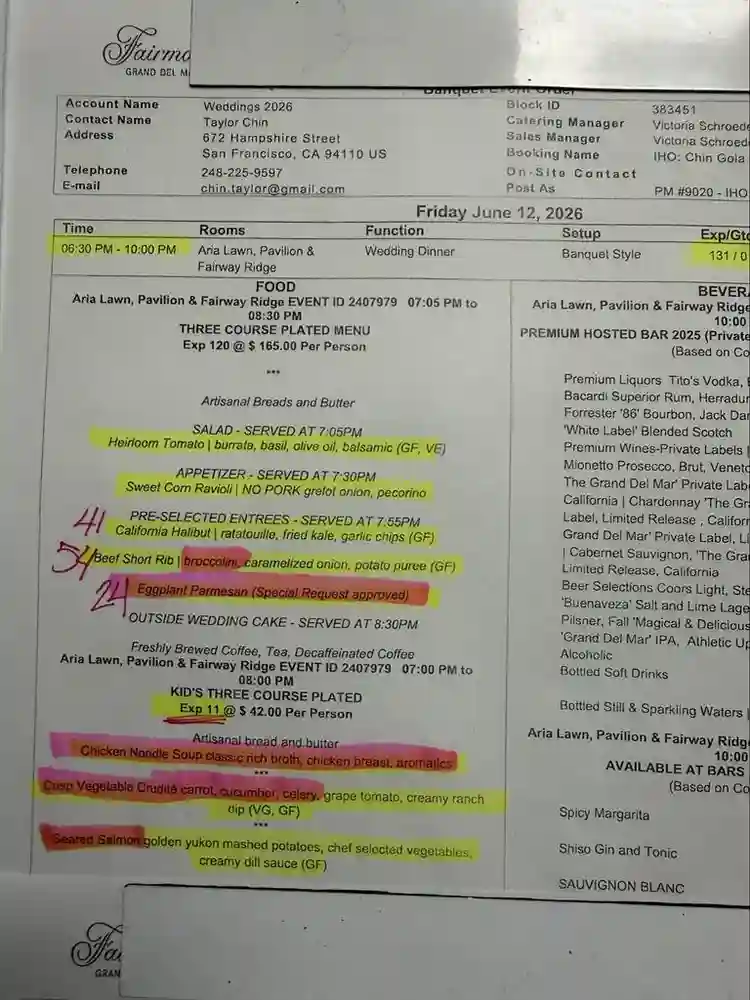 Fairmo
GRAND DEL M
Banquet Event Order
Account Name Weddings 2026
Contact Name Taylor Chin
Address 672 Hampshire Street
San Francisco, CA 94110 US
Telephone 248-225-9597
E-mail chin.taylor@gmail.com
Block ID 383451
Catering Manager Victoria Schroede
Sales Manager Victoria Schroede
Booking Name IHO: Chin Goia
On-Site Contact
Post As PM #9020 - IHO
Friday June 12, 2026
Time Rooms Function Setup Exp/Gtd
06:30 PM - 10:00 PM Aria Lawn, Pavilion & Wedding Dinner Banquet Style 131 / 0
Fairway Ridge
FOOD
Aria Lawn, Pavilion & Fairway Ridge EVENT ID 2407979 07:05 PM to
08:30 PM
THREE COURSE PLATED MENU
Exp 120 @ $ 165.00 Per Person
***
Artisanal Breads and Butter
SALAD - SERVED AT 7:05PM
Heirloom Tomato | burrata, basil, olive oil, balsamic (GF, VE)
APPETIZER - SERVED AT 7:30PM
Sweet Corn Ravioli | NO PORK grelot onion, pecorino
41 PRE-SELECTED ENTREES - SERVED AT 7:55PM
California Halibut | ratatouille, fried kale, garlic chips (GF)
54 Beef Short Rib | broccolini, caramelized onion, potato puree (GF)
24 Eggplant Parmesan (Special Request approved)
OUTSIDE WEDDING CAKE - SERVED AT 8:30PM
Freshly Brewed Coffee, Tea, Decaffeinated Coffee
Aria Lawn, Pavilion & Fairway Ridge EVENT ID 2407979 07:00 PM to
08:00 PM
KID'S THREE COURSE PLATED
Exp 11 @ $ 42.00 Per Person
Artisanal bread and butter
Chicken Noodle Soup classic rich broth, chicken breast, aromatics
***
Crisp Vegetable Crudité carrot, cucumber, celery, grape tomato, creamy ranch
dip (VG, GF)
***
Seared Salmon golden yukon mashed potatoes, chef selected vegetables,
creamy dill sauce (GF)
BEVERA
Aria Lawn, Pavilion & Fairway Ridge
10:00
PREMIUM HOSTED BAR 2025 (Private
(Based on Co
Premium Liquors Tito's Vodka, B
Bacardi Superior Rum, Herradur
Forrester '86' Bourbon, Jack Dan
'White Label' Blended Scotch
Premium Wines-Private Labels |
Mionetto Prosecco, Brut, Veneto
The Grand Del Mar' Private Lab
California | Chardonnay 'The Gr
Label, Limited Release , Californ
Grand Del Mar' Private Label, Li
| Cabernet Sauvignon, 'The Gra
Limited Release, California
Beer Selections Coors Light, Ste
'Buenaveza' Salt and Lime Lage
Pilsner, Fall 'Magical & Delicious
'Grand Del Mar' IPA, Athletic Up
Alcoholic
Bottled Soft Drinks
Bottled Still & Sparkling Waters |
Aria Lawn, Pavilion & Fairway Ridge
10:00
AVAILABLE AT BARS
(Based on Co
Spicy Margarita
Shiso Gin and Tonic
SAUVIGNON BLANC
Fai
GRAN